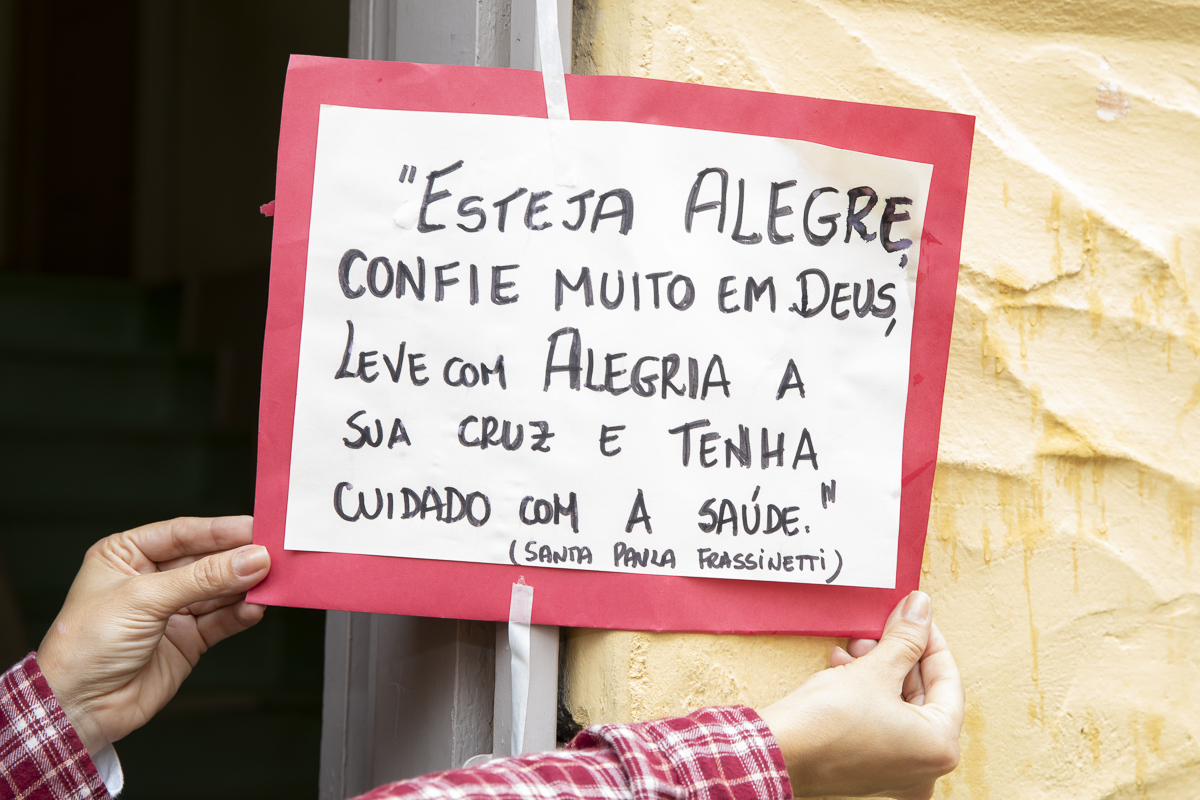 "ESTEJA ALEGRE,
CONFIE MUITO EM DEUS,
LEVE COM ALEGRIA A
SUA CRUZ E TENHA
CUIDADO COM A SAÚDE."
(SANTA PAULA FRASSINETTI)